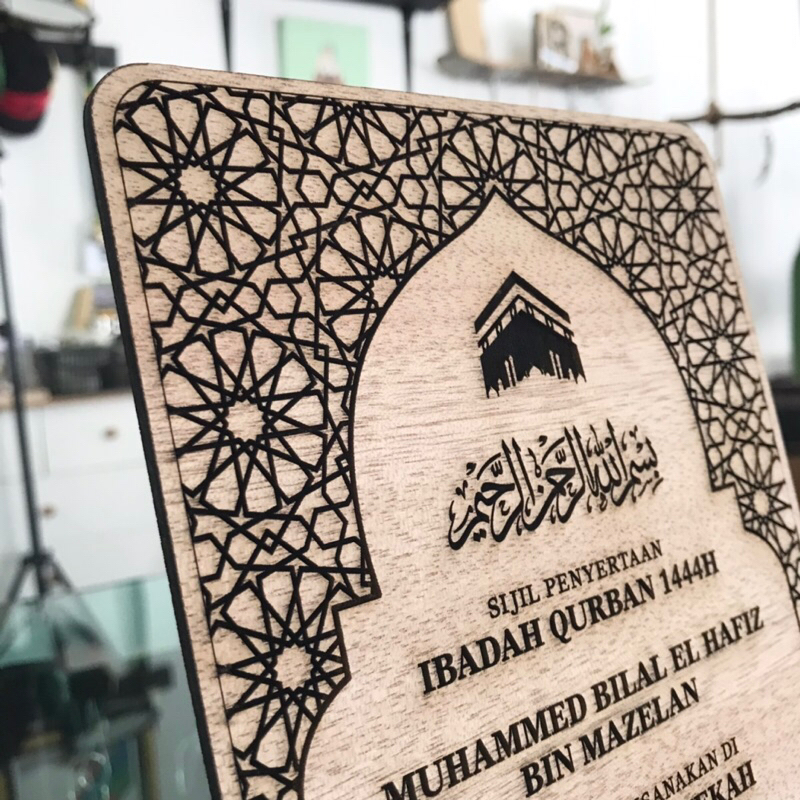 بسم الله الرحمن الرحيم
SIJIL PENYERTAAN
IBADAH QURBAN 1444H
MUHAMMED BILAL EL HAFIZ
BIN MAZELAN
DI